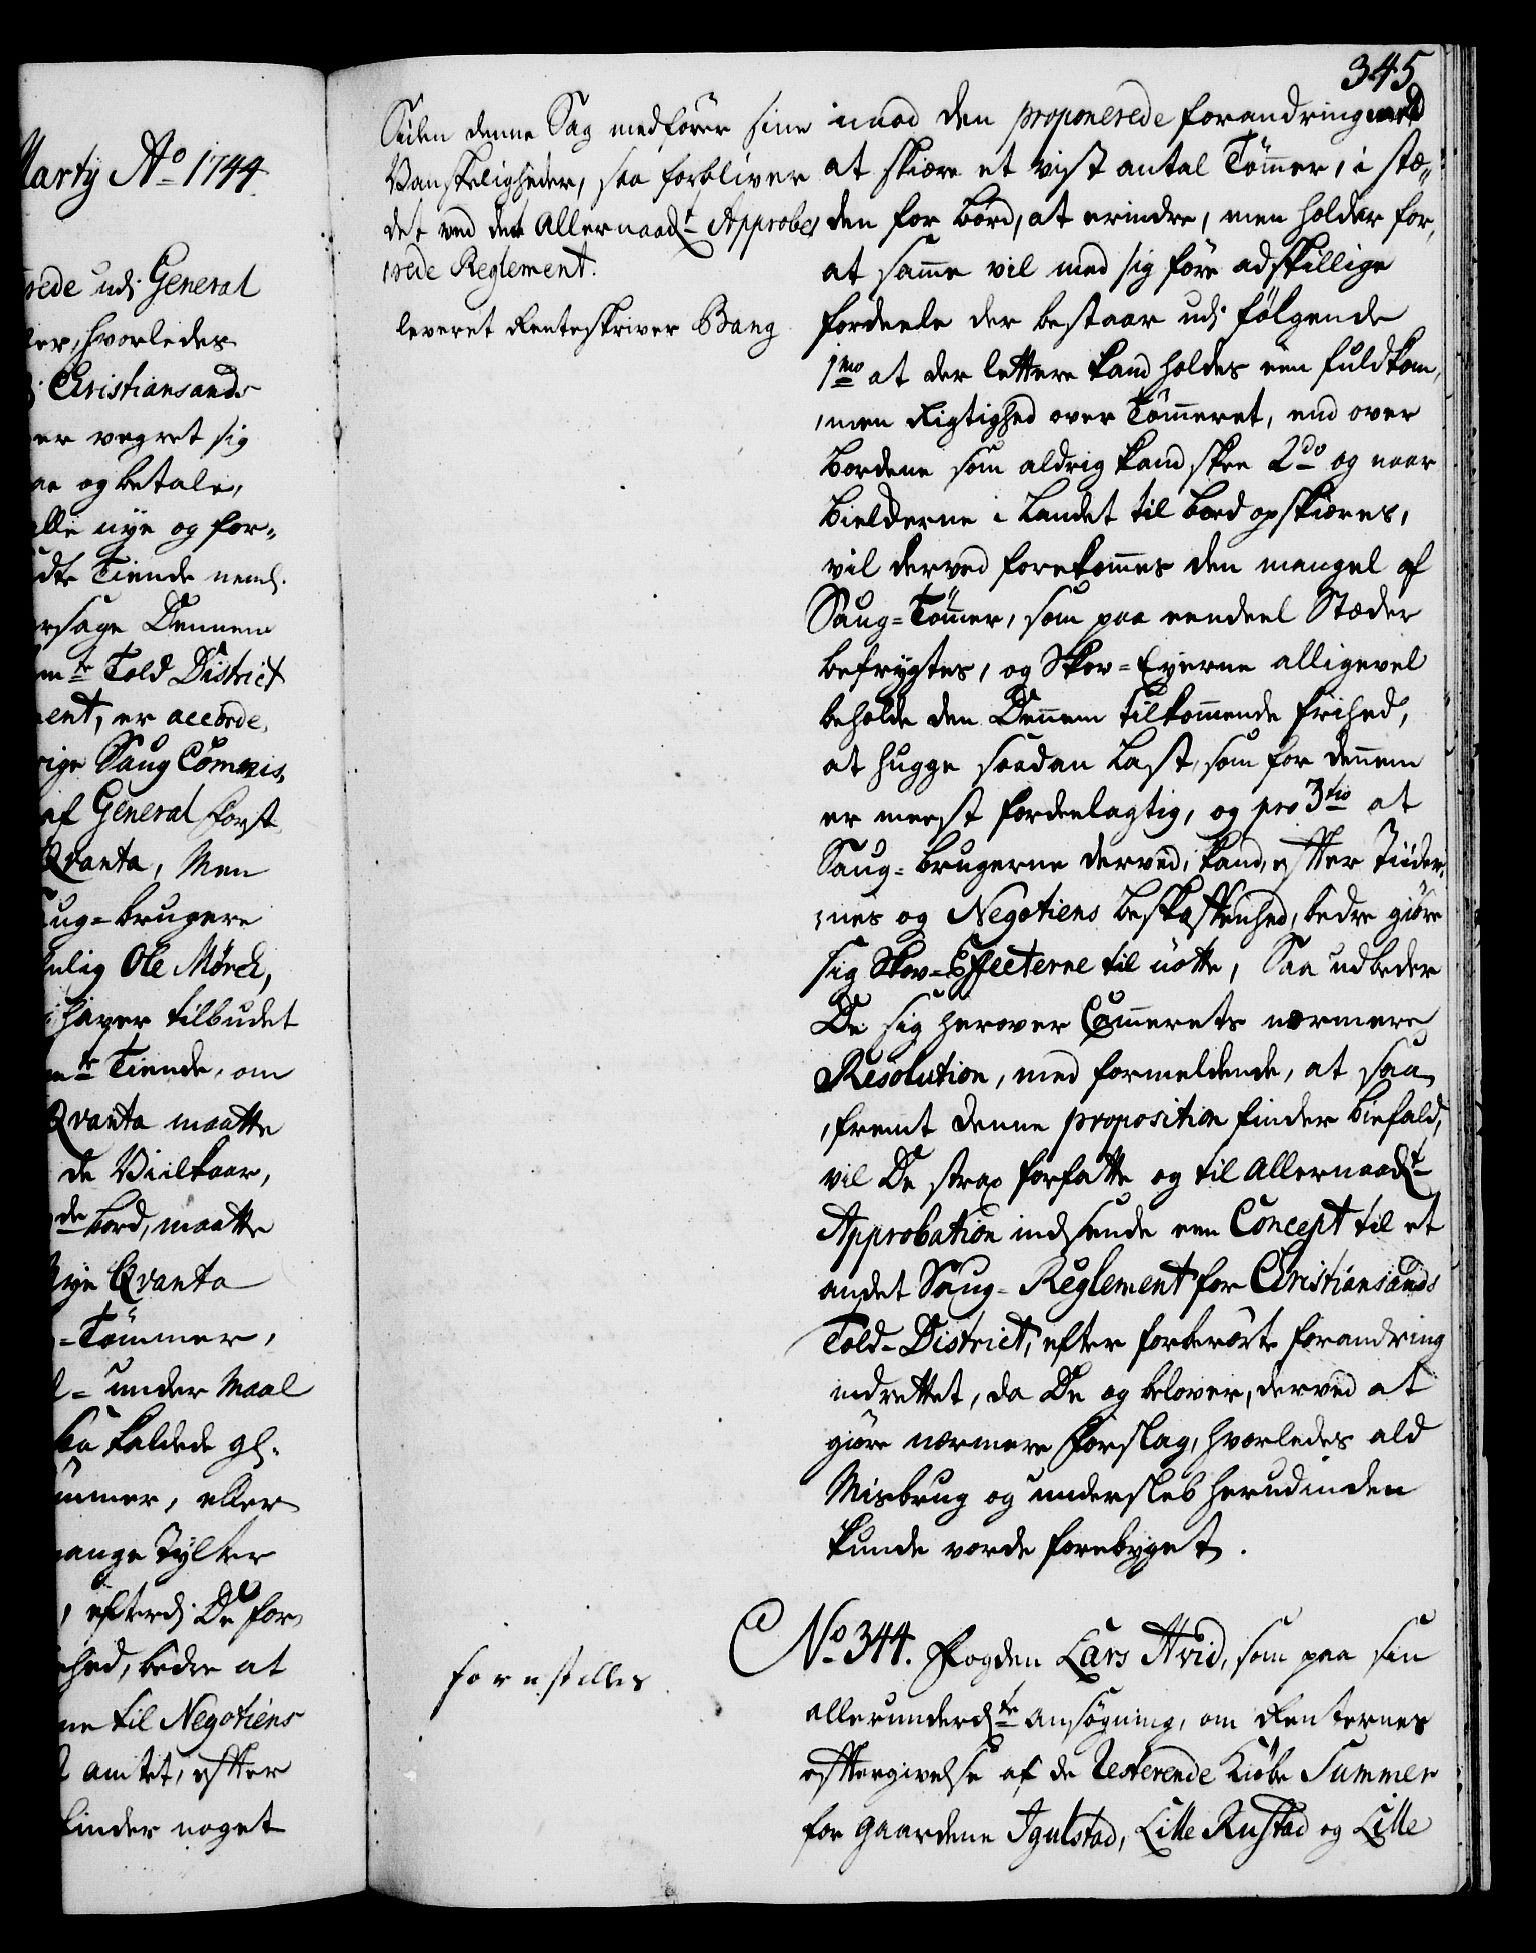 Marty Aº 1744.
rede udi General
er, hvorledes
i Christiansands
er vegret sig
aa og betale,
alle nye og for-
dte Tiende neml.
rsage Dennem
mte Told District
ment, er accorde,
rige Saug Commis,
af General Forst
Qvanta, Men
ug-brugere
nlig Ole Mørch,
haver tilbudet
mte Tiende, om
Qvanta maatte
de Viilkaar,
de bord, maatte
Nye Qvanta
-Tømmer,
l- under Maal
saa kaldede gl.
ømmer, eller
mange Tylter
, efterdj De for
hed, bedre at
ne til Negotiens
amtet, efter
finder noget
345
Siden denne Sag medfører sine
Vanskeligheder, saa forbliver
det ved det Allernaadt Approbe,
,rede Reglement.
leveret Renteskriver Bang
imod den proponerede forandring med
at skiære et vist antal Tømmer, i stæ,,
den for bord, at erindre, men holder for,
at samme vil med sig føre adskillige
fordeele der bestaar udj følgende
1mo at der lettere kand holdes een fuldkom,
,men Rigtighed over Tømmeret, end over
bordene som aldrig kand skee 2do og naar
bielderne i Landet til bord opskiæres,
vil derved forekommes den mangel af
Saug-Tømmer, som paa eendeel Stæder
befrygtes, og Skov-Eyerne alligevel
beholde den Dennem tilkommende frihed,
at hugge saadan Last, som for dennem
er meest fordeelagtig, og pro 3tio at
Saug-brugerne derved, kand, efter Tiider,
,nes og Negotiens beskaffenhed, bedre giøre
sig Skov-Effecterne til nøtte, Saa udbeder
De sig herover Cammerets nærmere
Resolution, med formeldende, at saa
,fremt denne proposition finder biefald,
vil De strax forfatte og til Allernaadt
Approbation indsende een Concept til et
andet Saug-Reglement for Christiansands
Told-District, efter forberørte forandring
indrettet, da De og belover, derved at
giøre nærmere Forslag, hvorledes ald
Misbrug og undersleb herudinden
kunde vorde forebyget.
forestilles
No 344. Fogden Lars Hvid, som paa sin
allerunderdte ansøgning, om Renternes
eftergivelse af de Resterende Kiøbe Summer
for gaardene Igulstad, Lille Rustad og Lille